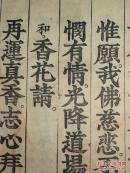 惟願我佛慈悲
憫有情光降道場
和香花請
再運真香志心拜